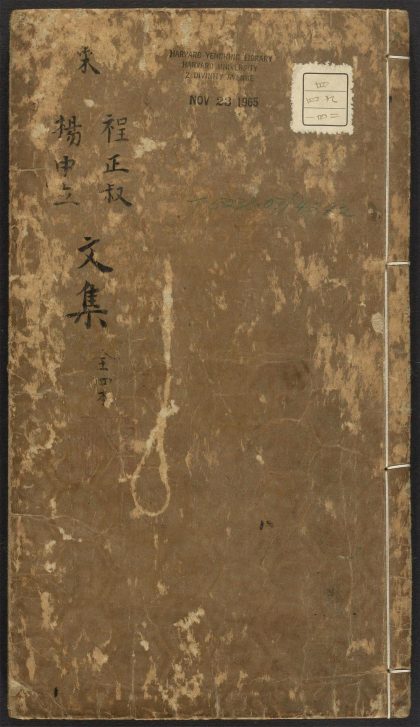 宋
程正叔
揚中立
文集
HARVARD-YENCHING LIBRARY
HARVARD UNIVERSITY
2 DIVINITY AVENUE
NOV 23 1965
四
四九
一四二